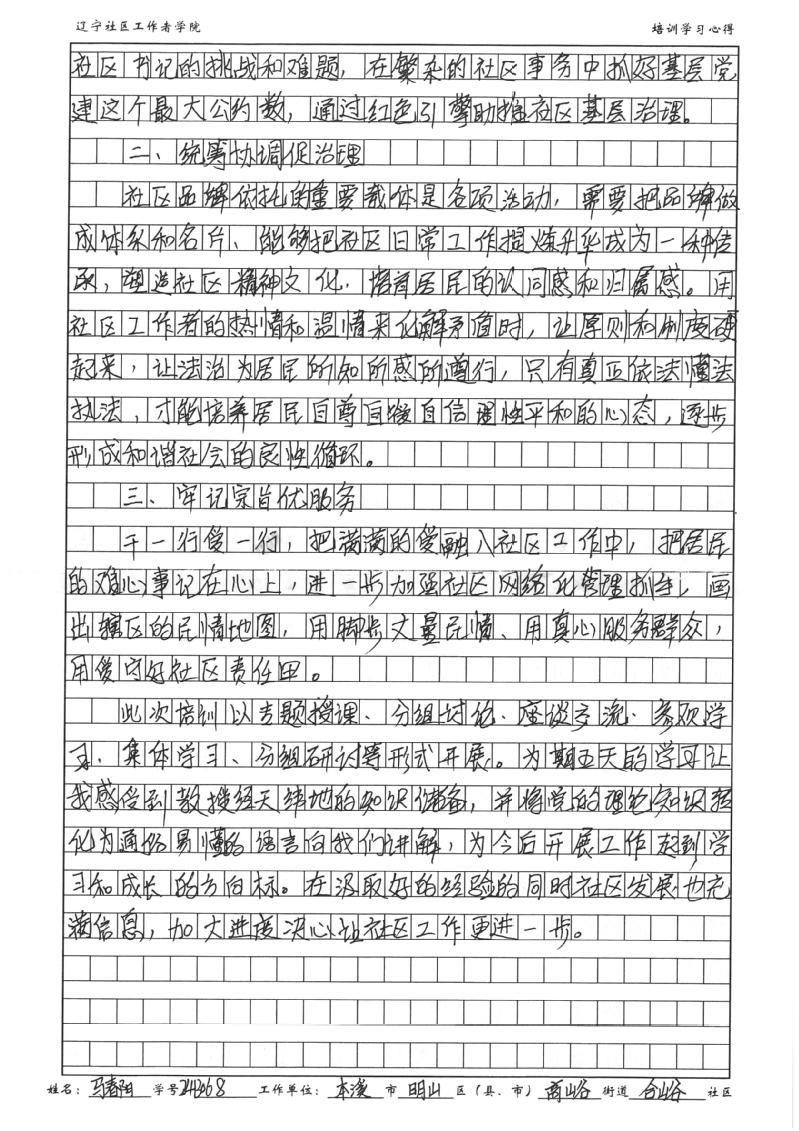 辽宁社区工作者学院 培训学习心得
社区书记的挑战和难题，在繁杂的社区事务中抓好基层党
建这个最大公约数，通过红色引擎助推社区基层治理。
二、统筹协调促治理
社区品牌依托的重要载体是各项活动，需要把品牌做
成体系和名片、能够把社区日常工作提炼升华成为一种传
承，塑造社区精神文化，培育居民的认同感和归属感。用
社区工作者的热情和温情来化解矛盾时，让原则和制度硬
起来，让法治为居民所知所感所遵行，只有真正依法懂法
执法，才能培养居民自尊自强自信理性平和的心态，逐步
形成和谐社会的良性循环。
三、牢记宗旨优服务
干一行爱一行，把满满的爱融入社区工作中，把居民
的难心事记在心上，进一步加强社区网络化管理抓手，画
出辖区的民情地图，用脚步丈量民情、用真心服务群众，
用爱守好社区责任田。
此次培训以专题授课、分组讨论、座谈交流、参观学
习、集体学习、分组研讨等形式开展。为期五天的学习让
我感受到教授经天纬地的知识储备，并将党的理论知识转
化为通俗易懂的语言向我们讲解，为今后开展工作起到学
习和成长的方向标。在汲取好的经验的同时社区发展也充
满信息，加大进度决心让社区工作更进一步。
姓名：马春阳 学号242068 工作单位：本溪市明山区（县、市）高峪街道台峪社区